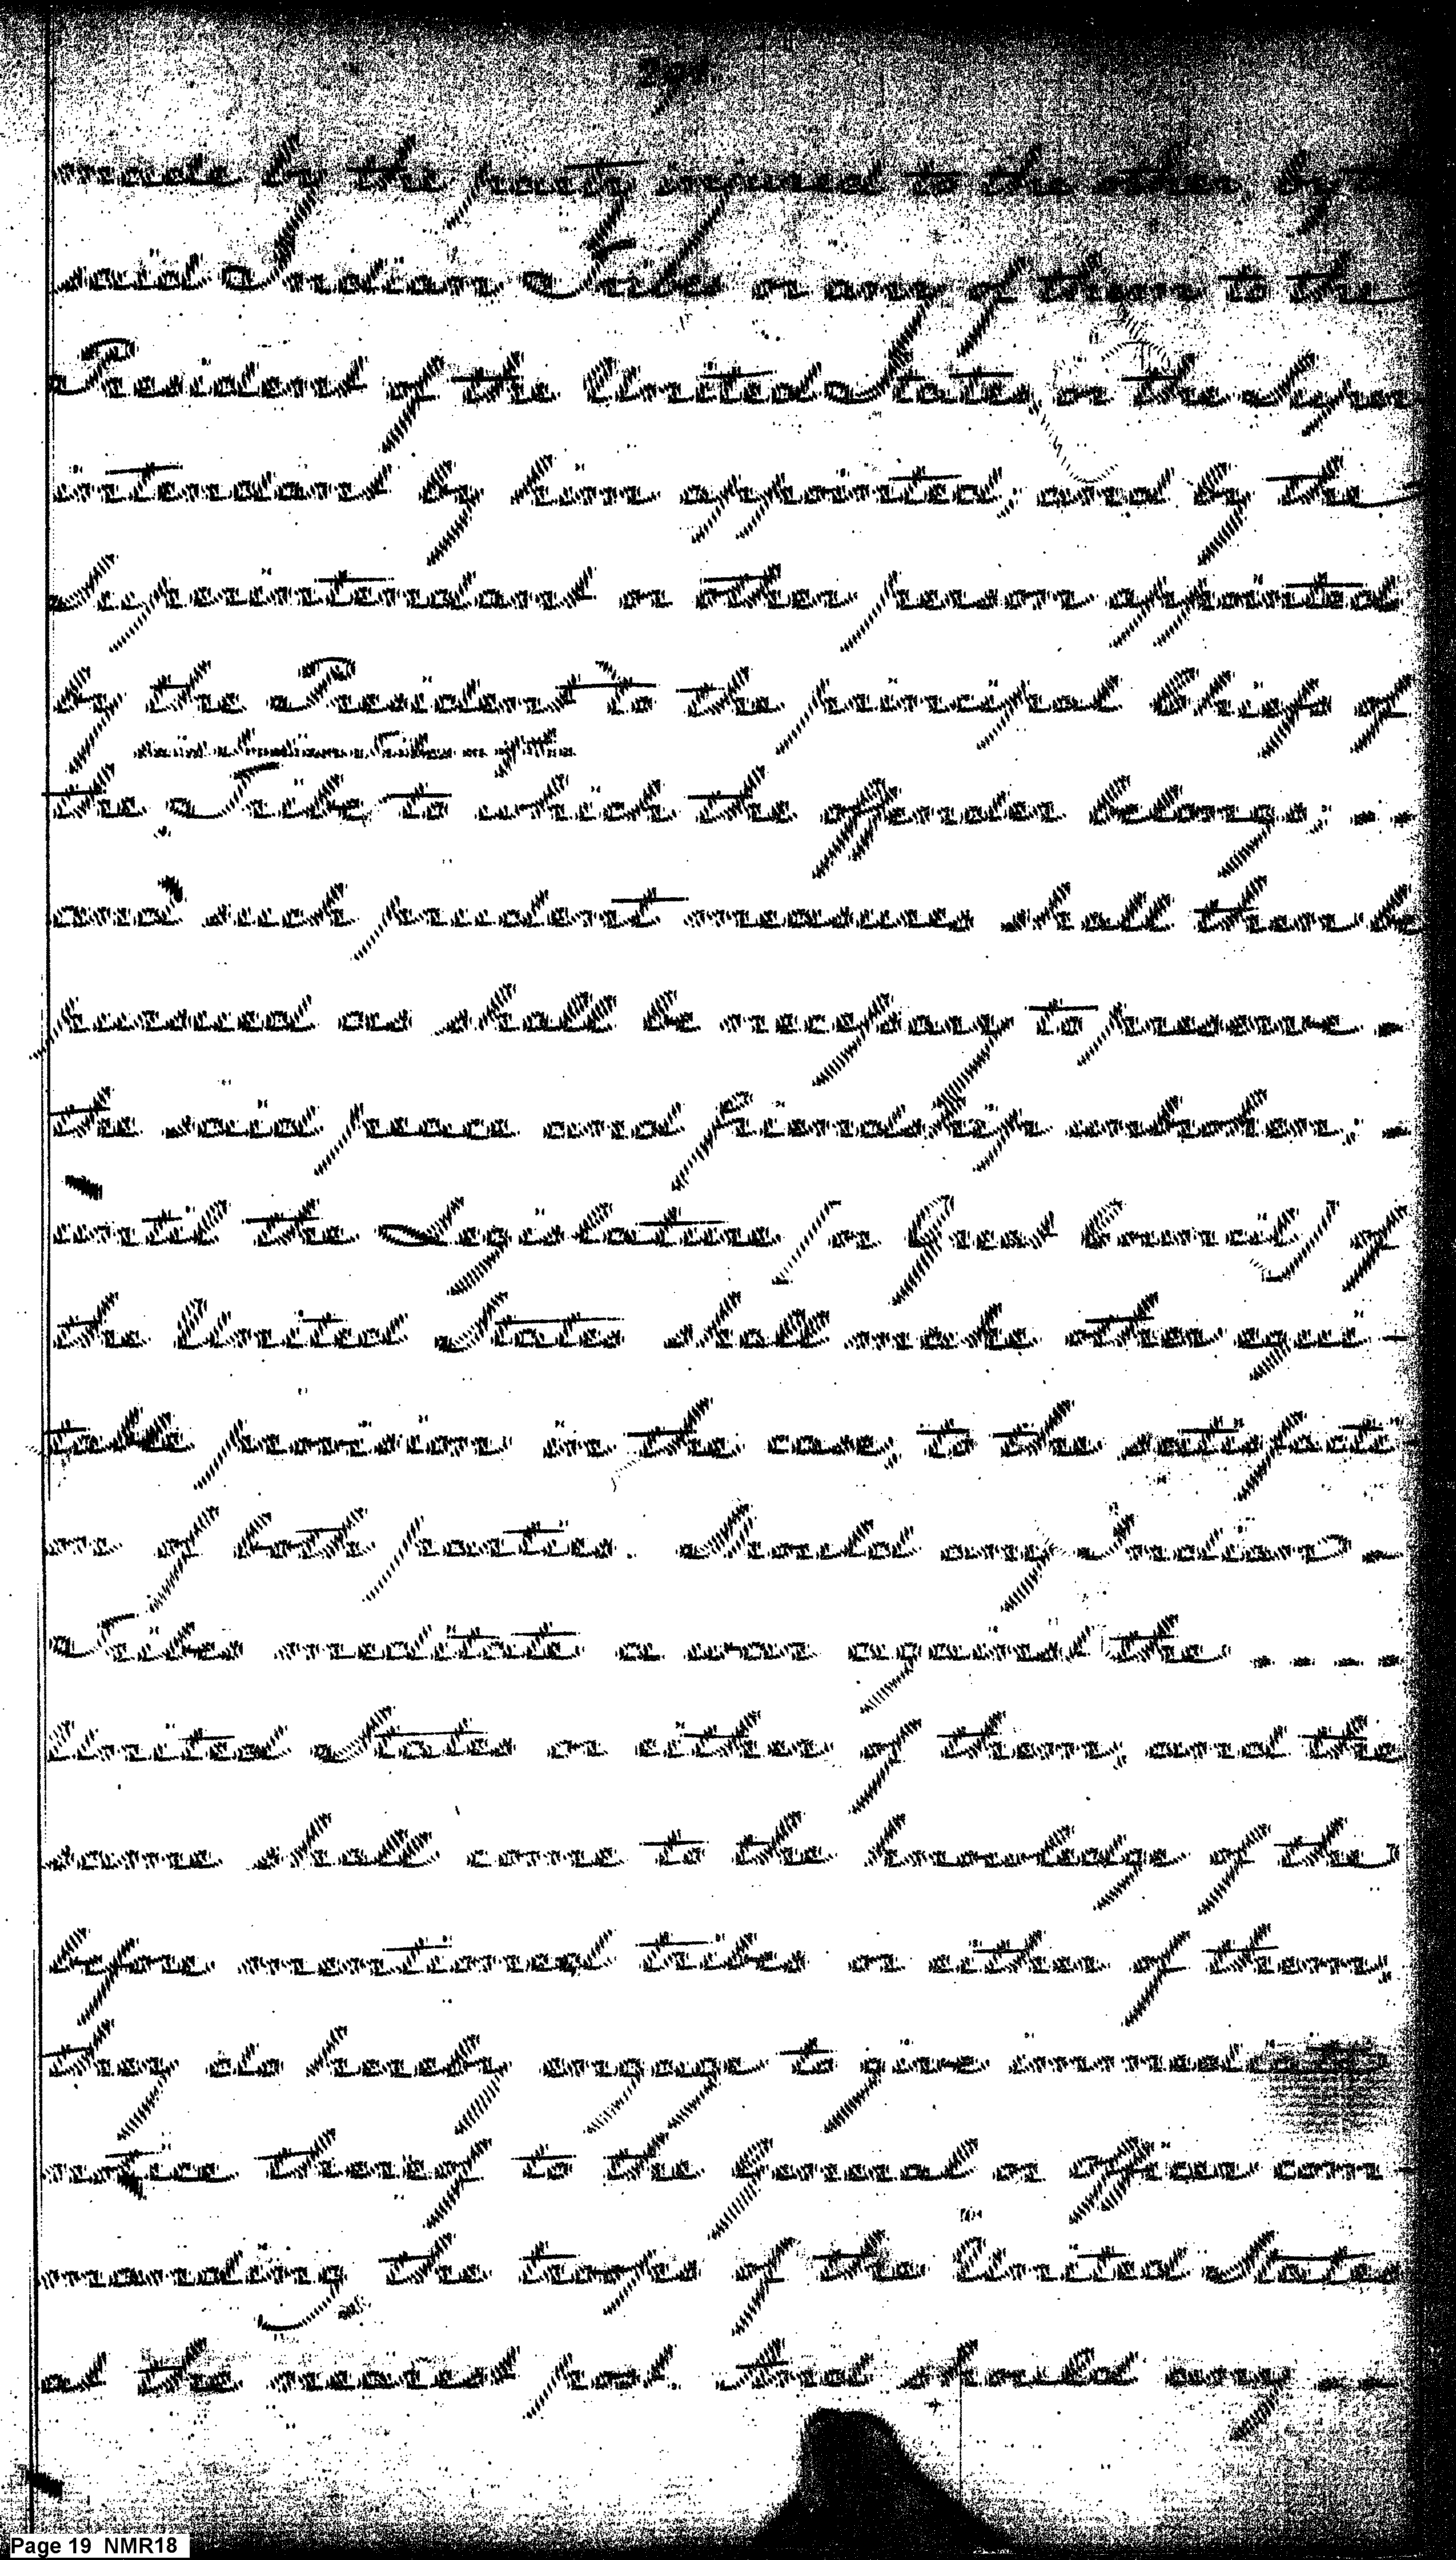 made by the party injured to the other, by
said Indian Tribes or any of them to the
President of the United States, or the Super
intendant by him appointed; and by the
Superintendant or other person appointed
by the President to the principal Chiefs of
said Indian Tribes or of the
the Tribe to which the offender belongs; --
and such prudent measures shall then be
pursued as shall be necessary to preserve -
the said peace and friendship unbroken; -
until the Legislature (or Great Council) of
the United States shall make other equi-
table provision in the case, to the satisfacti-
on of both parties. Should any Indian -
Tribes meditate a war against the ----
United States or either of them, and the
same shall come to the knowledge of the
before mentioned tribes or either of them,
they do hereby engage to give immediate
notice thereof to the General or officer com-
manding the troops of the United States
at the nearest post. And should any --
Page 19 NMR18